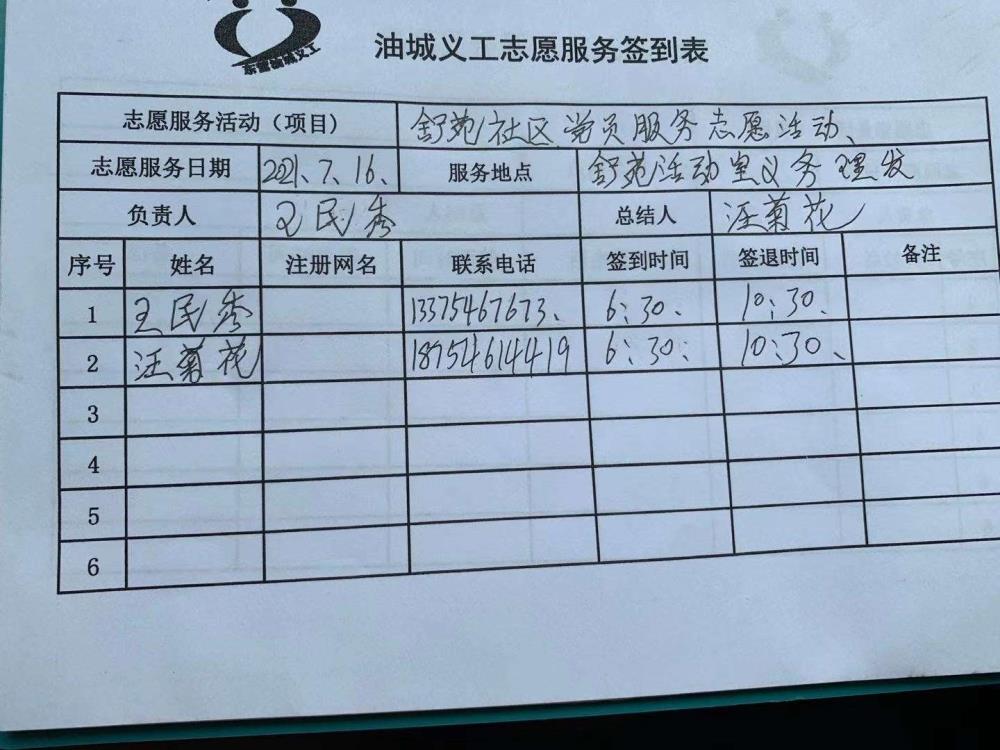 东营油城义工
油城义工志愿服务签到表
志愿服务活动（项目） 舒苑社区党员服务志愿活动、
志愿服务日期 2021.7、16、 服务地点 舒苑活动室义务理发
负责人 王民秀 总结人 汪菊花
序号 姓名 注册网名 联系电话 签到时间 签退时间 备注
1 王民秀 13375467673、 6:30、 10:30、
2 汪菊花 18754614419 6:30: 10:30、
3
4
5
6